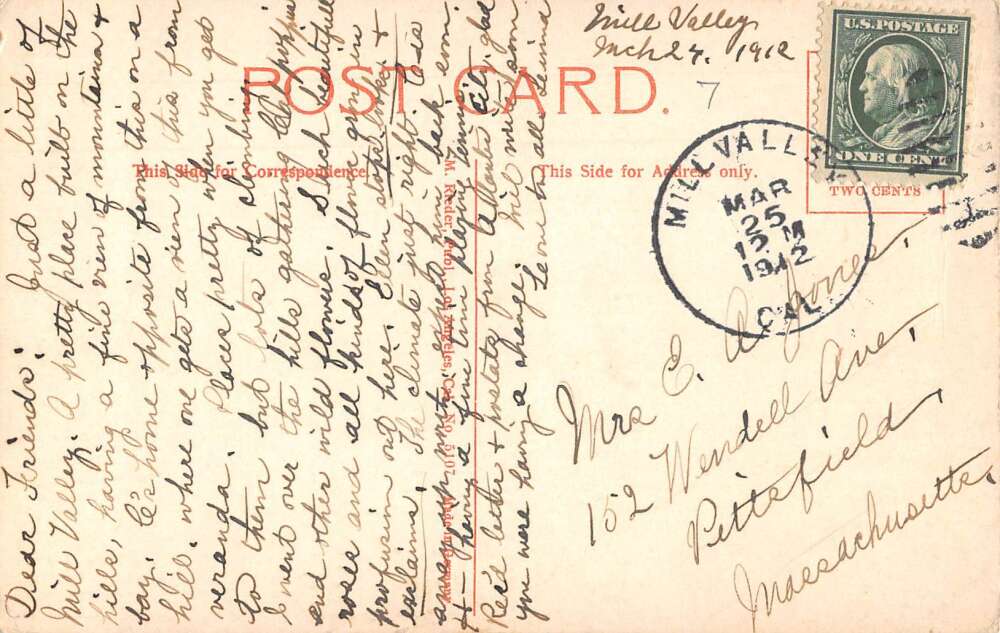 Mill Valley
Mch 24. 1912
POST CARD.
7
U.S. POSTAGE
ONE CENT
TWO CENTS
This Side for Correspondence.
This Side for Address only.
MILL VALLEY
MAR
25
12 M
1912
CAL.
M. Rieder, Publ., Los Angeles, Cal. No. 5107. Made in Germany.
Dear Friends: Just a little of
Mill Valley. A pretty place built on the
hills, having a fine view of mountains &
bay. C's home & opposite from this on a
hill. where one gets a view of this from
veranda. Places pretty when you get
to them but lots of climbing.
I went over the hills gathering Cal. poppies
and other wild flowers. Such beautiful
roses and all kinds of flowers grow in
profusion out here. Ellen stops, looks, &
exclaims. The climate just right. Elsie
away on party, expect him back soon
& having a fine time playing tennis.
Rec'd letter & postals from Atlantic City, glad
you were having a change. Will write soon
Love to all
Mrs E. A. Jones,
152 Wendell Ave,
Pittsfield,
Massachusetts.